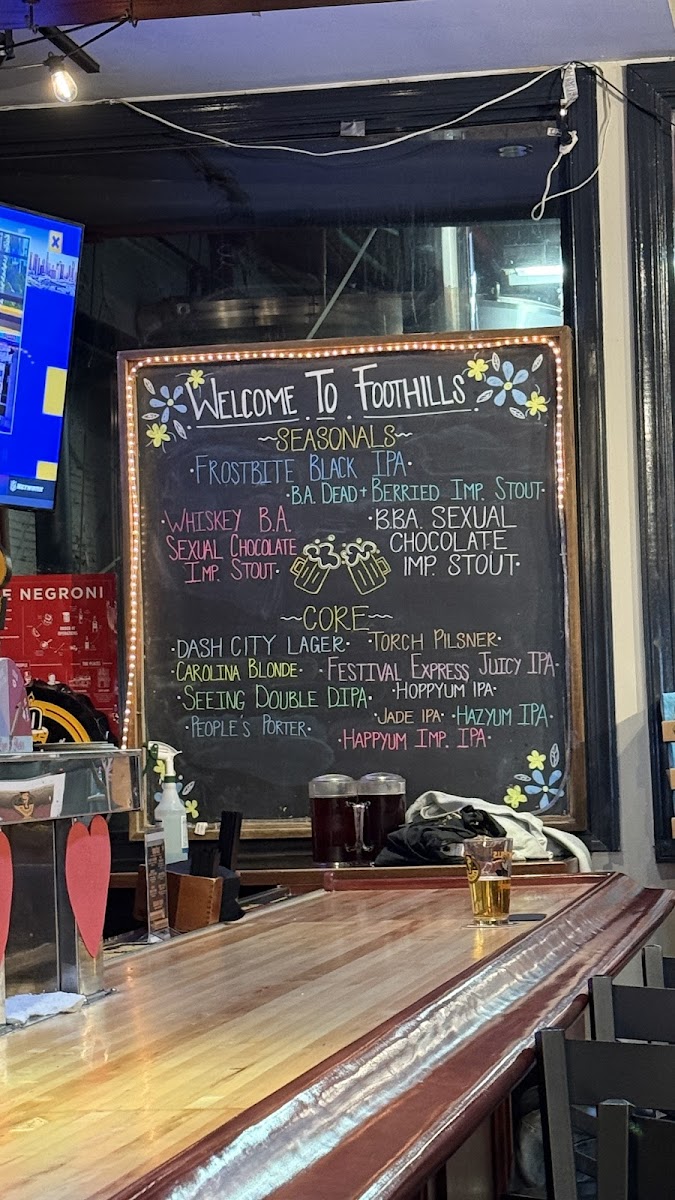 WELCOME TO FOOTHILLS
~SEASONALS~
·FROSTBITE BLACK IPA·
·B.A. DEAD + BERRIED IMP. STOUT·
·WHISKEY B.A.
SEXUAL CHOCOLATE
IMP. STOUT·
·B.B.A. SEXUAL
CHOCOLATE
IMP. STOUT·
~CORE~
·DASH CITY LAGER·
·TORCH PILSNER·
·CAROLINA BLONDE·
·FESTIVAL EXPRESS JUICY IPA·
·SEEING DOUBLE DIPA·
·HOPPYUM IPA·
·PEOPLE'S PORTER·
·JADE IPA·
·HAZYUM IPA·
·HAPPYUM IMP. IPA·
E NEGRONI